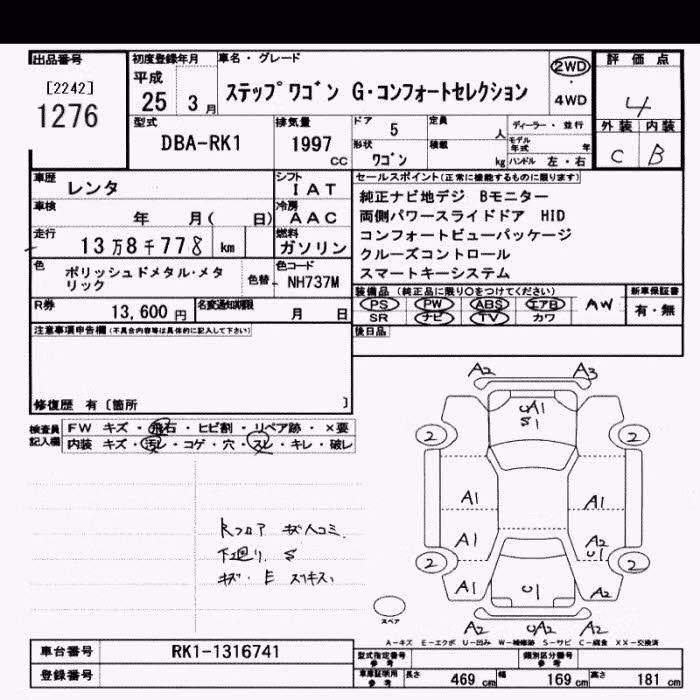 出品番号
[2242]
1276
初度登録年月
平成
25 3 月
車名・グレード
ステップワゴン G・コンフォートセレクション
2WD
・
4WD
評価点
4
外装 内装
C B
型式
DBA-RK1
排気量
1997
cc
ドア 5
形状
ワゴン
定員 人
積載 kg
ディーラー・並行
モデル年式 年
ハンドル 左・右
車歴 レンタ
車検 年 月( 日)
走行 13万8千778 km
色 ポリッシュドメタル・メタリック
色替
シフト
IAT
冷房
AAC
燃料
ガソリン
色コード
NH737M
R券 13,600 円
名変通知期限 月 日
セールスポイント(正常に機能するものに限ります)
純正ナビ地デジ Bモニター
両側パワースライドドア HID
コンフォートビューパッケージ
クルーズコントロール
スマートキーシステム
装備品(純正品に限り○をつけてください)
PS PW ABS エアB AW
SR ナビ TV カワ
新車保証書
有・無
後日品
注意事項申告欄(不具合内容等は具体的に記入して下さい)
修復歴 有〔箇所 〕
検査員記入欄
FW キズ・飛石・ヒビ割・リペア跡・×要
内装 キズ・汚レ・コゲ・穴・スレ・キレ・破レ
Rフロア キズ人コミ
下廻り S
キズ・E
A2 A3
UA1
S1
2 2
A1 A1
A1 A2
U1
2 2
A1 U1 A2
A2 UA2 A2
スペア
A-キズ E-エクボ U-凹み W-補修跡 S-サビ C-腐食 XX-交換済
車台番号 RK1-1316741
登録番号
型式指定番号
参考
類別区分番号
参考
車庫証明用
参考
長さ 469 cm 幅 169 cm 高さ 181 cm